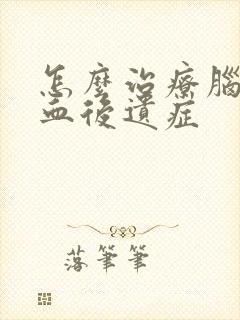 怎麼治療腦
血後遺症
落筆筆